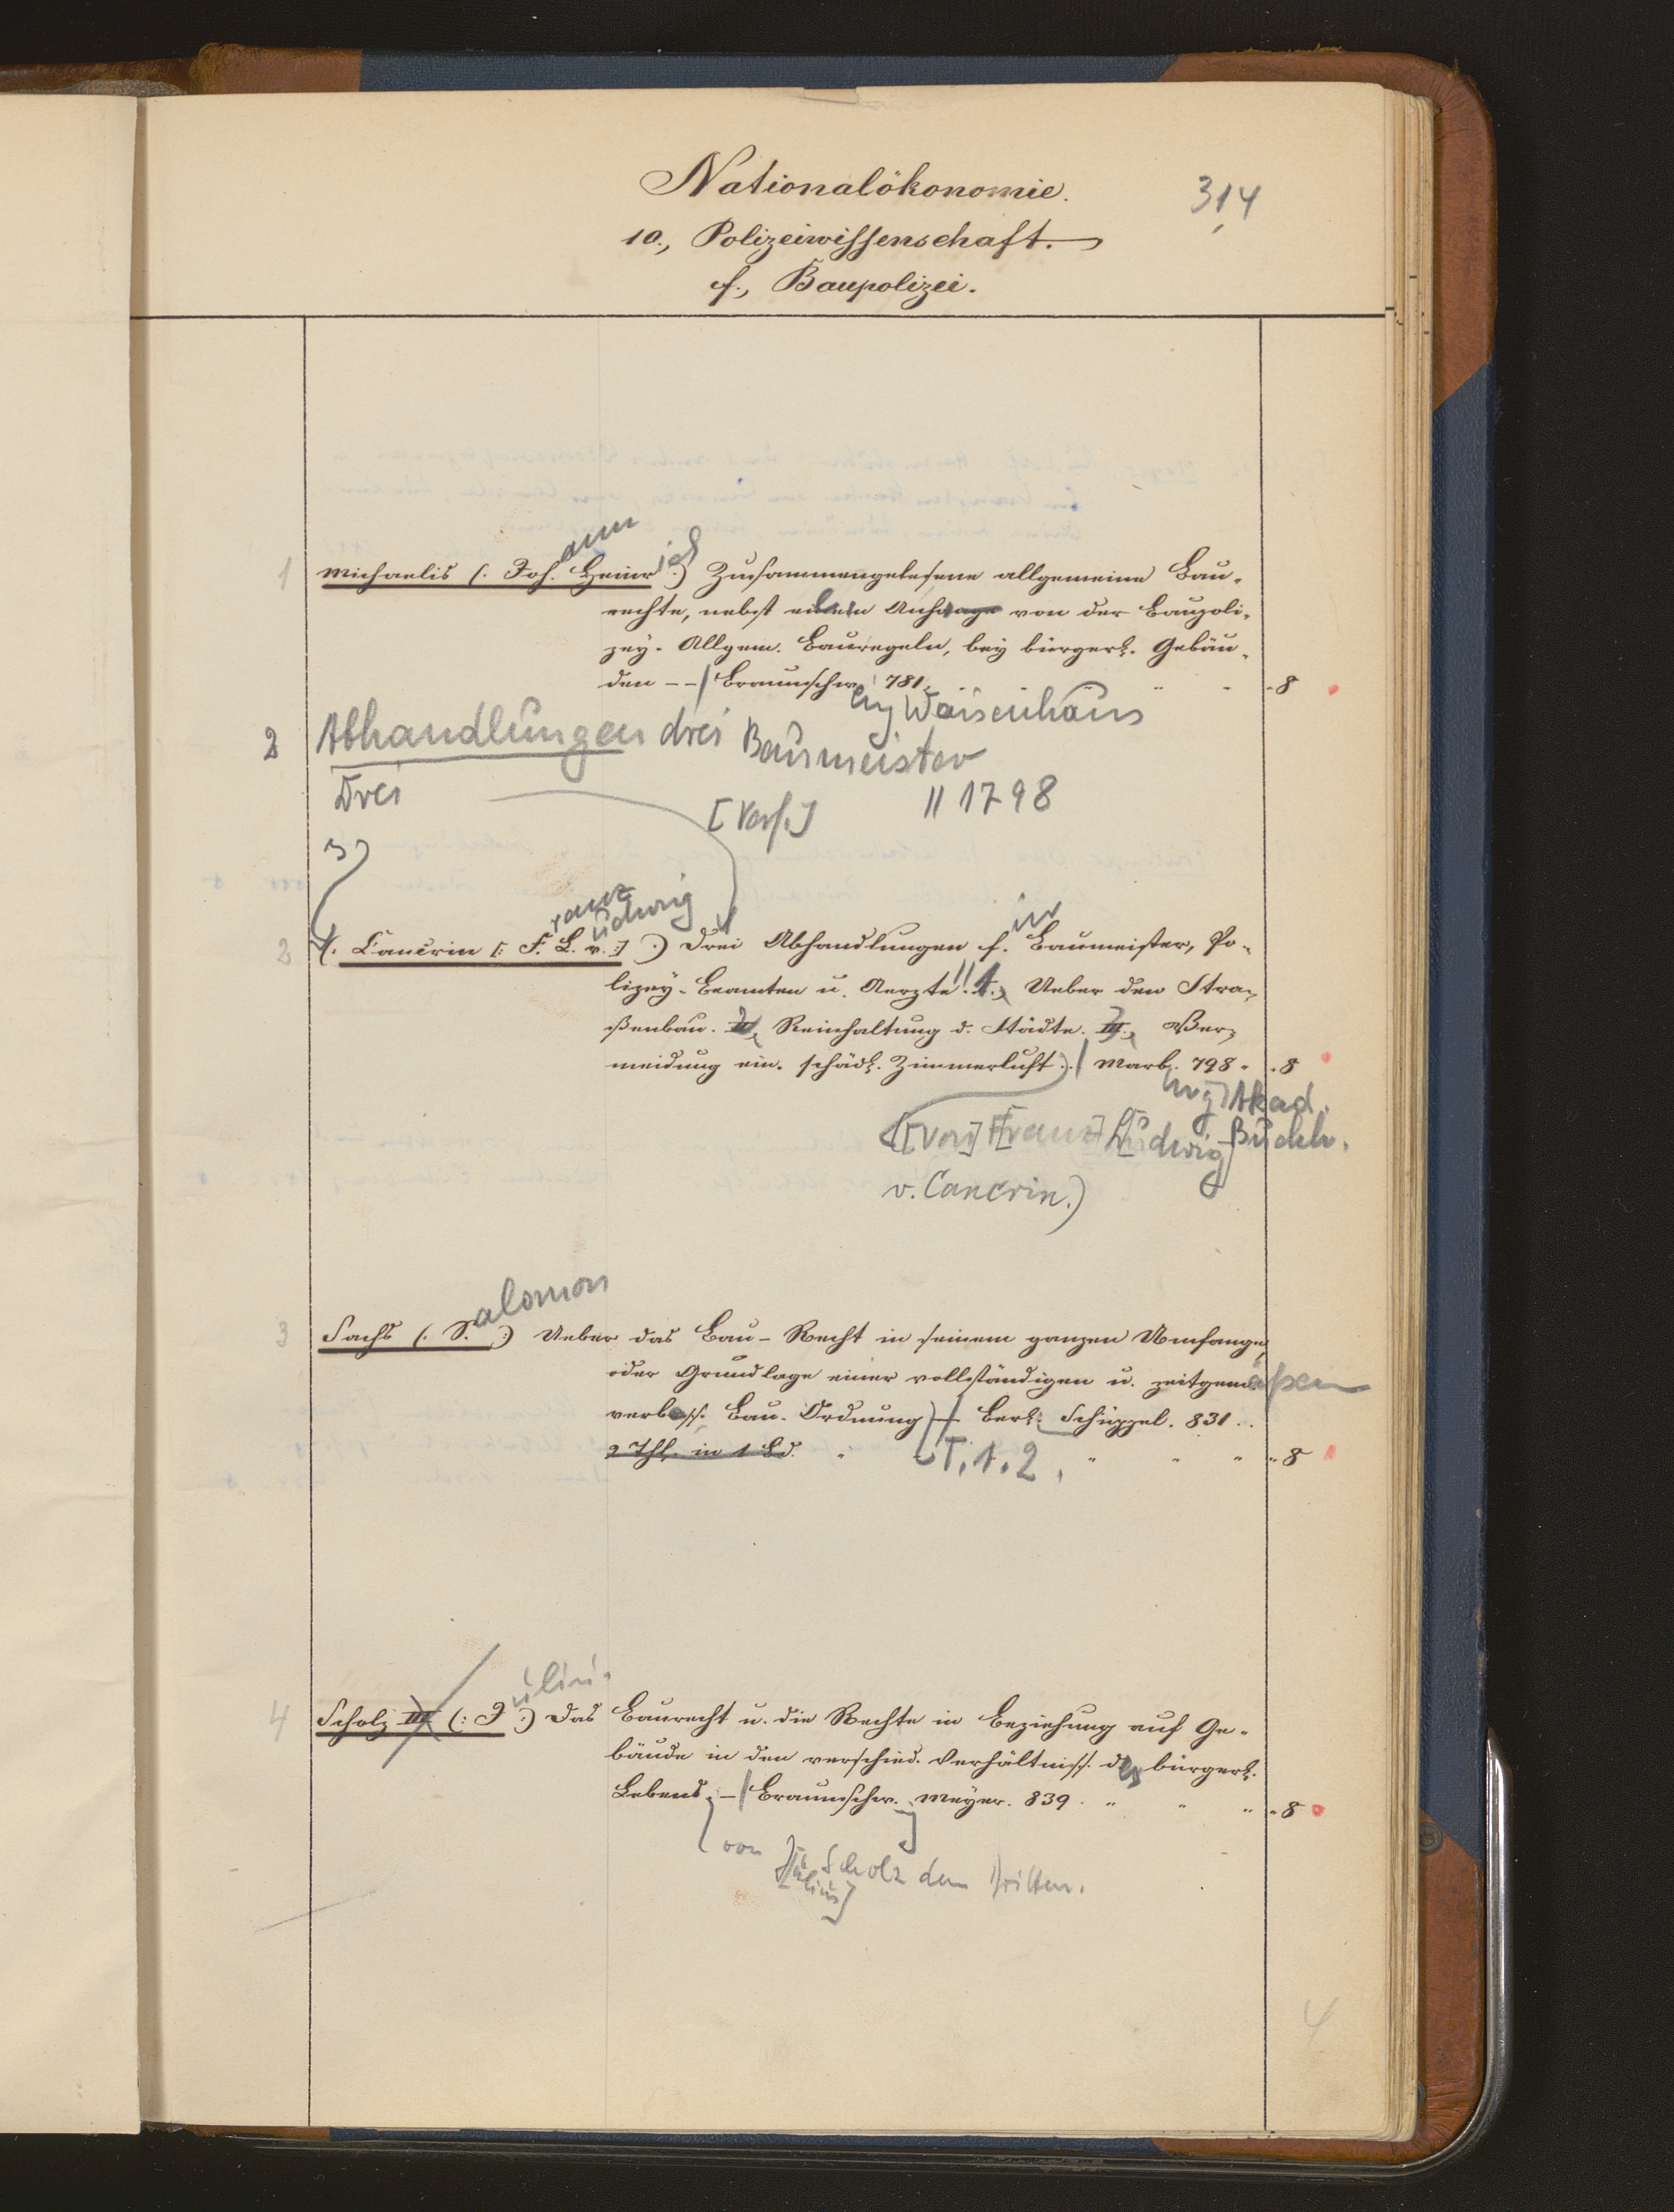 Nationalökonomie.
314
10., Polizeiwissenschaft.
f., Baupolizei.
1 Michaelis (: Joh.ann Heinrich :) Zusammengelesene allgemeine Bau-
rechte, nebst einem Anhange von der Baupoli-
zey. Allgem. Bauregeln, bey bürgerl. Gebäu-
den -- / Braunschw. 781. " " " 8
Waisenhaus
2 Abhandlungen drei Baumeister
Drei
[Verf.] || 1798
2 (: Cancrin [: F.ranz L.udwig v. :] :) Drei Abhandlungen f.ür Baumeister, Po-
lizey-Beamten u. Aerzte. || 1., Ueber den Stra-
ßenbau. 2, Reinhaltung d. Städte. 3, Ver-
meidung ein. schädl. Zimmerluft.) / Marb. 798 " " 8
Akad.
([von] F[ranz] L[udwig] Buchh.
v. Cancrin.)
3 Sachs (: S.alomon :) Ueber das Bau-Recht in seinem ganzen Umfange,
oder Grundlage einer vollständigen u. zeitgemäßen
verbess. Bau-Ordnung) - / Berl. Schüppel. 831 ..
2 Thl. in 1 Bd. " T. 1. 2. " " " " 8
4 Scholz III (: Juliu. :) Das Baurecht u. die Rechte in Beziehung auf Ge-
bäude in den verschied. Verhältniss. des bürgerl.
Lebens. - / Braunschw. Meyer. 839 . " " " " 8
von J[ulius] Scholz dem Dritten.
4